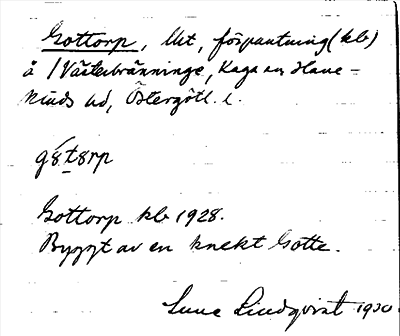 Gottorp, lht, förpantning (kb)
å 1/Västerbränninge, Kaga sn Hane-
kinds hd, Östergötl. l.
gǿtørp
Gottorp kb 1928.
Byggt av en knekt Gotte.
Sune Lindqvist 1930